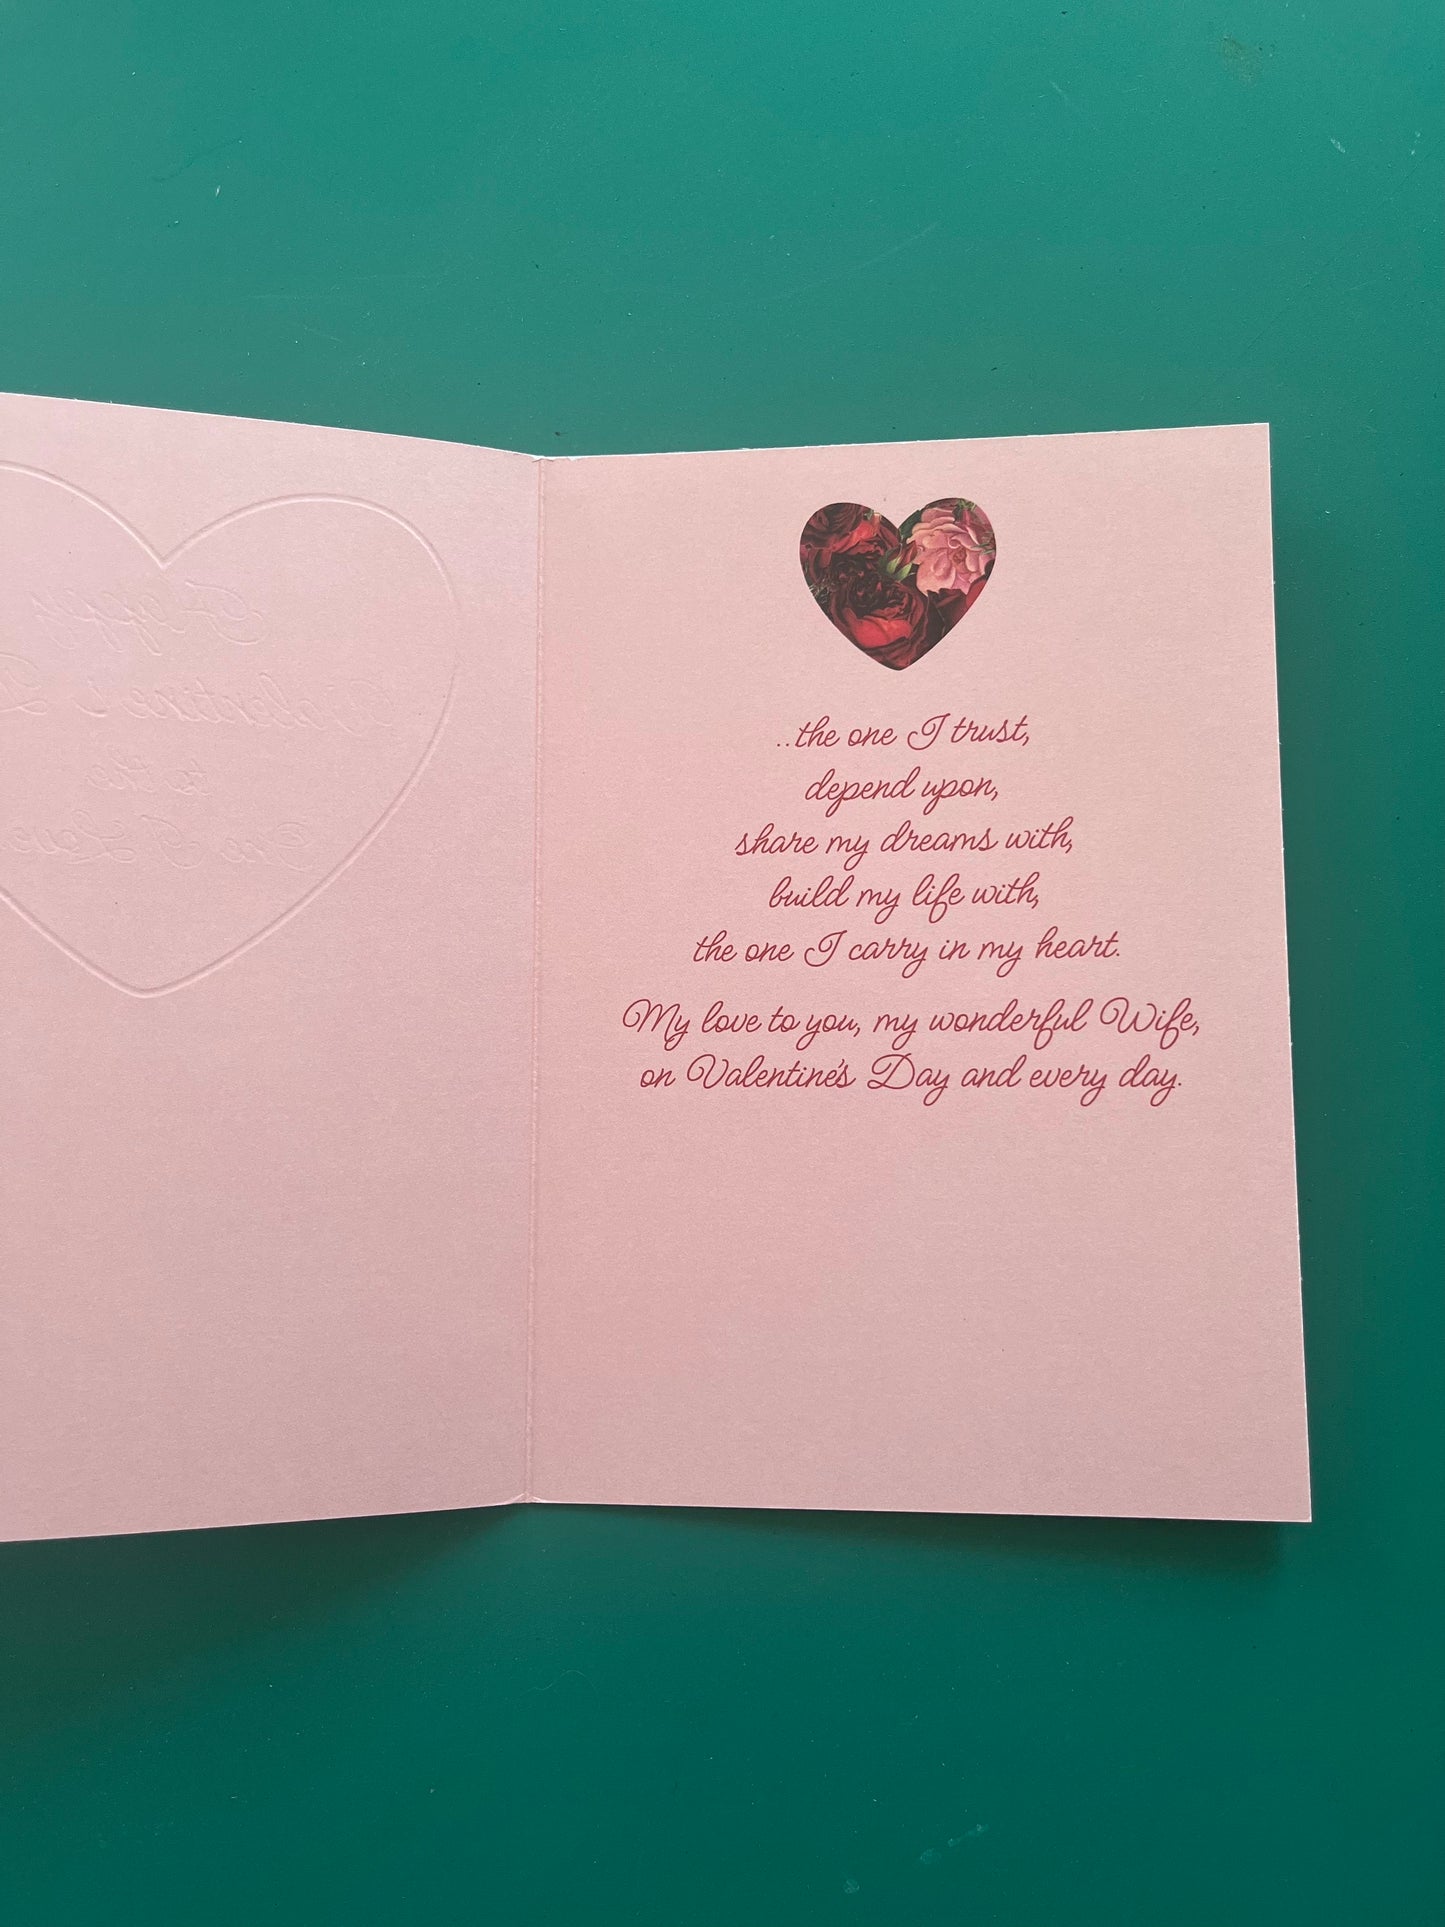 Happy
Valentine's D
to the
One I Love
..the one I trust,
depend upon,
share my dreams with,
build my life with,
the one I carry in my heart.
My love to you, my wonderful Wife,
on Valentine's Day and every day.